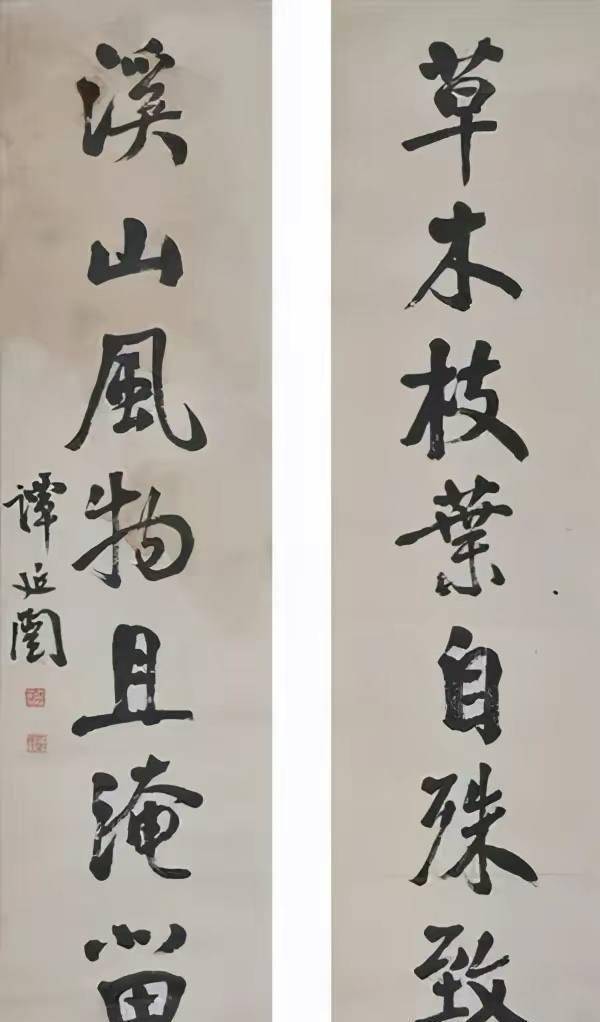 草木枝葉自殊致
溪山風物且淹留
譚延闓